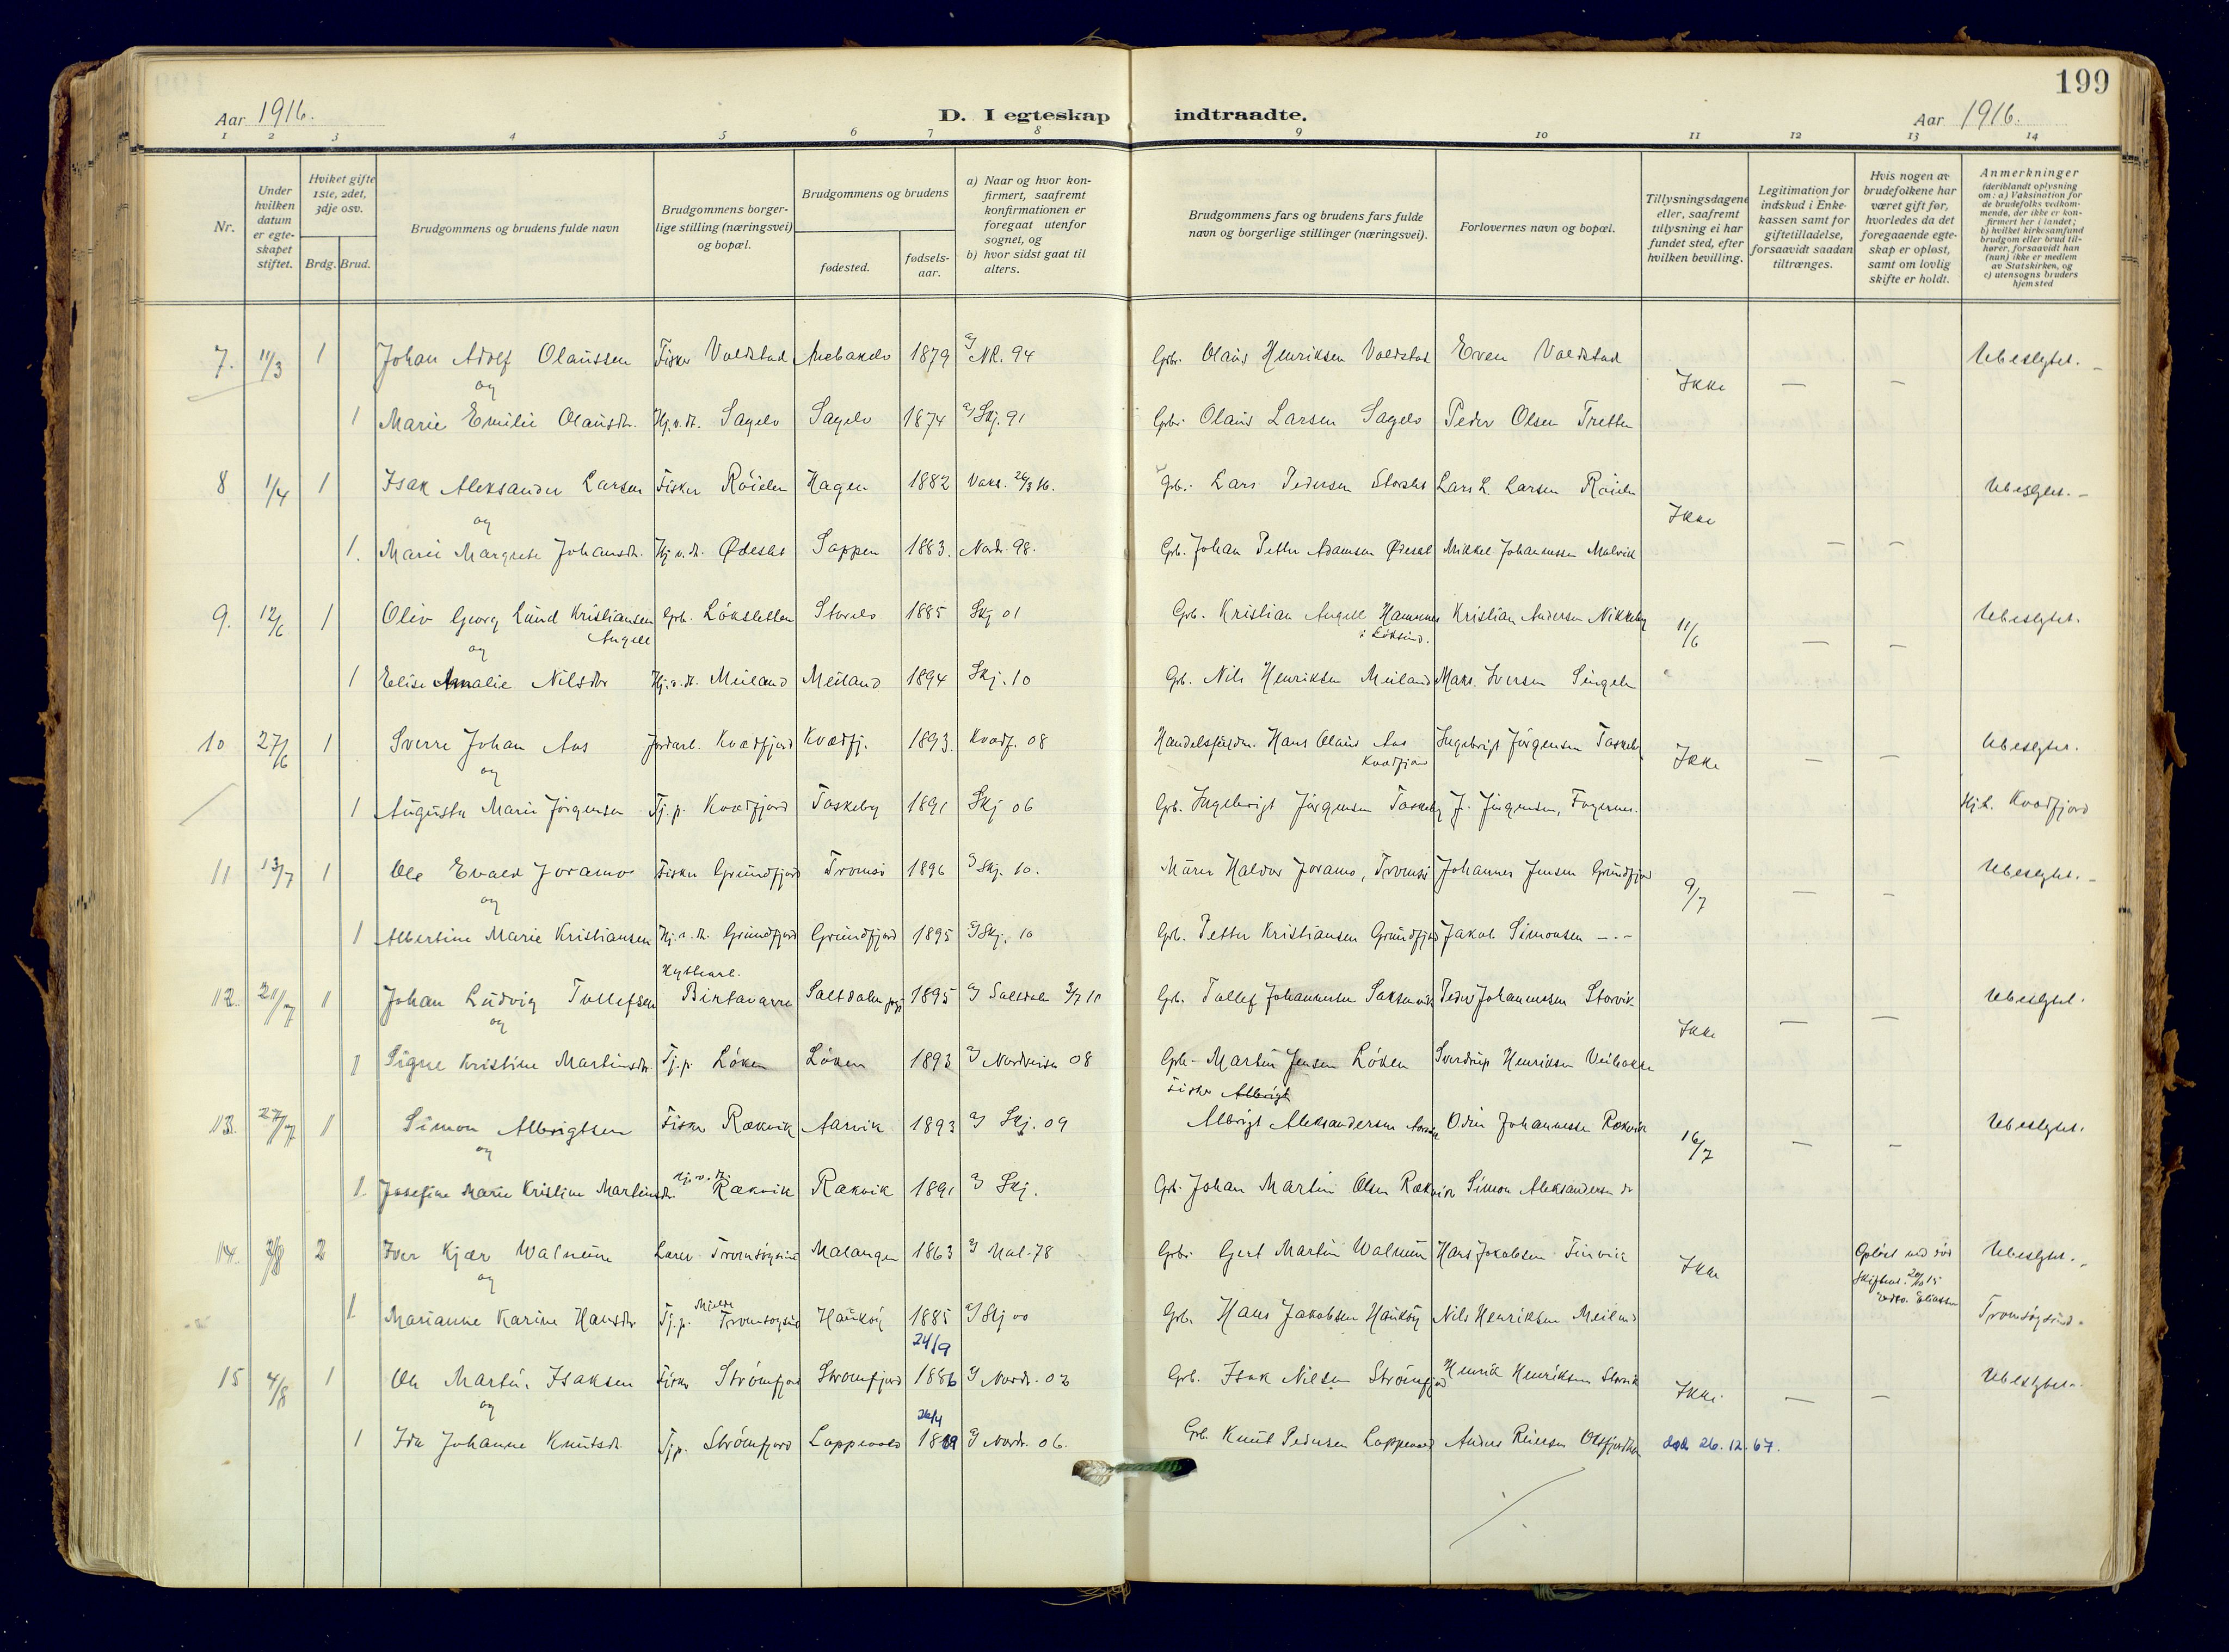 199
Aar 1916.
D. I egteskap indtraadte.
Aar 1916.
1 2 3 4 5 6 7 8 9 10 11 12 13 14
Nr.
Under hvilken datum er egte-skapet stiftet.
Hviket gifte 1ste, 2det, 3dje osv.
Brdg. Brud.
Brudgommens og brudens fulde navn
Brudgommens borger-lige stilling (næringsvei) og bopæl.
Brudgommens og brudens
fødested.
fødsels-aar.
a) Naar og hvor kon-firmert, saafremt konfirmationen er foregaat utenfor sognet, og
b) hvor sidst gaat til alters.
Brudgommens fars og brudens fars fulde navn og borgerlige stillinger (næringsvei).
Forlovernes navn og bopæl.
Tillysningsdagene eller, saafremt tillysning ei har fundet sted, efter hvilken bevilling.
Legitimation for indskud i Enke-kassen samt for giftetilladelse, forsaavidt saadan tiltrænges.
Hvis nogen av brudefolkene har været gift før, hvorledes da det foregaaende egte-skap er opløst, samt om lovlig skifte er holdt.
Anmerkninger (deriblandt oplysning om: a) Vaksination for de brudefolks vedkom-mende, der ikke er kon-firmert her i landet; b) hvilket kirkesamfund brudgom eller brud til-hører, forsaavidt han (hun) ikke er medlem av Statskirken, og c) utensogns bruders hjemsted
7. 11/3 1 Johan Adolf Olaussen Fisker Valdstad 1879 94 Grb. Olaus Henriksen Valdstad Even Valdstad Ikke — — Ubeslgtet.
og
1 Marie Emilie Olausdtr. Hj.v.dt. Sagelv Sagelv 1874 Skj. 91 Grb. Olaus Larsen Sagelv Peder Olsen Tretten
8 1/4 1 Isak Aleksander Larsen Fisker Röielen Hagen 1882 Vaks. 26/3 16. Grb. Lars Pedersen Storslet Lars L. Larsen Röielen Ikke Ubeslgtet.
og
1. Marie Margrete Johansdtr. Hj.v.dt. Ødeslet Sappen 1883. Nordr. 98. Grb. Johan Petter Adamsen Ødeslet Mikkel Johannessen Malvik — —
9. 12/6 1 Oliv Georg Lund Kristiansen Angell Grb. Löksletten Storelv 1885 Skj 01 Grb. Kristian Angell Hamnnes Kristian Andersen Nikkeby 11/6 — — Ubeslgtet.
og
1 Elise Amalie Nilsdtr Hj.v.dt. Meiland Meiland 1894 Skj. 10 Grb. Nils Henriksen Meiland Maks. Iversen Singeln
10 27/6 1 Sverre Johan Aas Jordarb. Kvædfjord Kvædfj. 1893. Kvædf. 08 Hans Olaus Aas Kvædfjord Ingebrigt Jörgensen Taskeby Ikke — — Ubeslgtet.
og
1 Augusta Marie Jörgensen Tj.p. Kvædfjord Taskeby 1891 Skj 06 Grb. Ingebrigt Jörgensen Taskeby J. Jörgensen, Fagernes. Hj.st. Kvædfjord
11 13/7 1 Ole Evald Joramo Fisker Grundfjord Tromsö 1896 Skj. 10. Murer Haldor Joramo, Tromsö Johannes Jensen Grundfjord 9/7 — — Ubeslgtet.
og
1 Albertine Marie Kristiansen Hj.v.dt. Grundfjord Grundfjord 1895 Skj. 10 Grb. Petter Kristiansen Grundfjord Jakob Simonsen —.—
12. 21/7 1 Johan Ludvig Tollefsen Hyttearb. Birtavarre Saltdalen 1895 Saltdalen 3/7 11 Grb. Tollef Johannesen Saksenvik Peder Johannesen Storvik Ikke — — Ubeslgtet.
og
1 Signe Kristine Martinsdtr. Tj.p. Löken Löken 1893 Nordreisa 08 Grb. Martin Jensen Löken Sverdrup Henriksen
13. 27/7 1 Simon Albrigtsen Fisker Rækvik Aarvik 1893 Skj. 09 Fisker Albrigt Aleksandersen Aarvik Odin Johannesse Rækvik 16/7 — — Ubeslgtet.
og
1. Josefine Marie Kristine Martinsdtr. Hj.v.dt. Rækvik Rækvik 1891 Skj. Grb. Johan Martin Olsen Rækvik Simon Aleksandersen do
14. 2 Iver Kjær Walnum Lærer Tromsöysund Malangen 1863 Mal. 78 Grb. Gert Martin Walnum Hans Jakobsen Finvik Ikke Oplöst ved död Skifteat. 20/10 15 Ubeslgtet.
og
1. Marianne Karine Hansdtr. Tj.p. Mjelde Tromsöysund Hauköy 1885 Skj 00 Grb. Hans Jakobsen Hauköy Nils Henriksen Meiland Tromsöysund.
15 4/8 1 Ole Martin Isaksen Fisker Strömfjord Strömfjord 24/9 1886 Nordr. 02 Grb. Isak Nilsen Strömfjord Henrik Henriksen Storvik Ikke. — — Ubeslgtet.
og
1 Ida Johanne Knutsdtr. Tj.p. Strömfjord Lappevold 1889 Nordr. 06. Grb. Knut Pedersen Lappevold død 26.12.67.